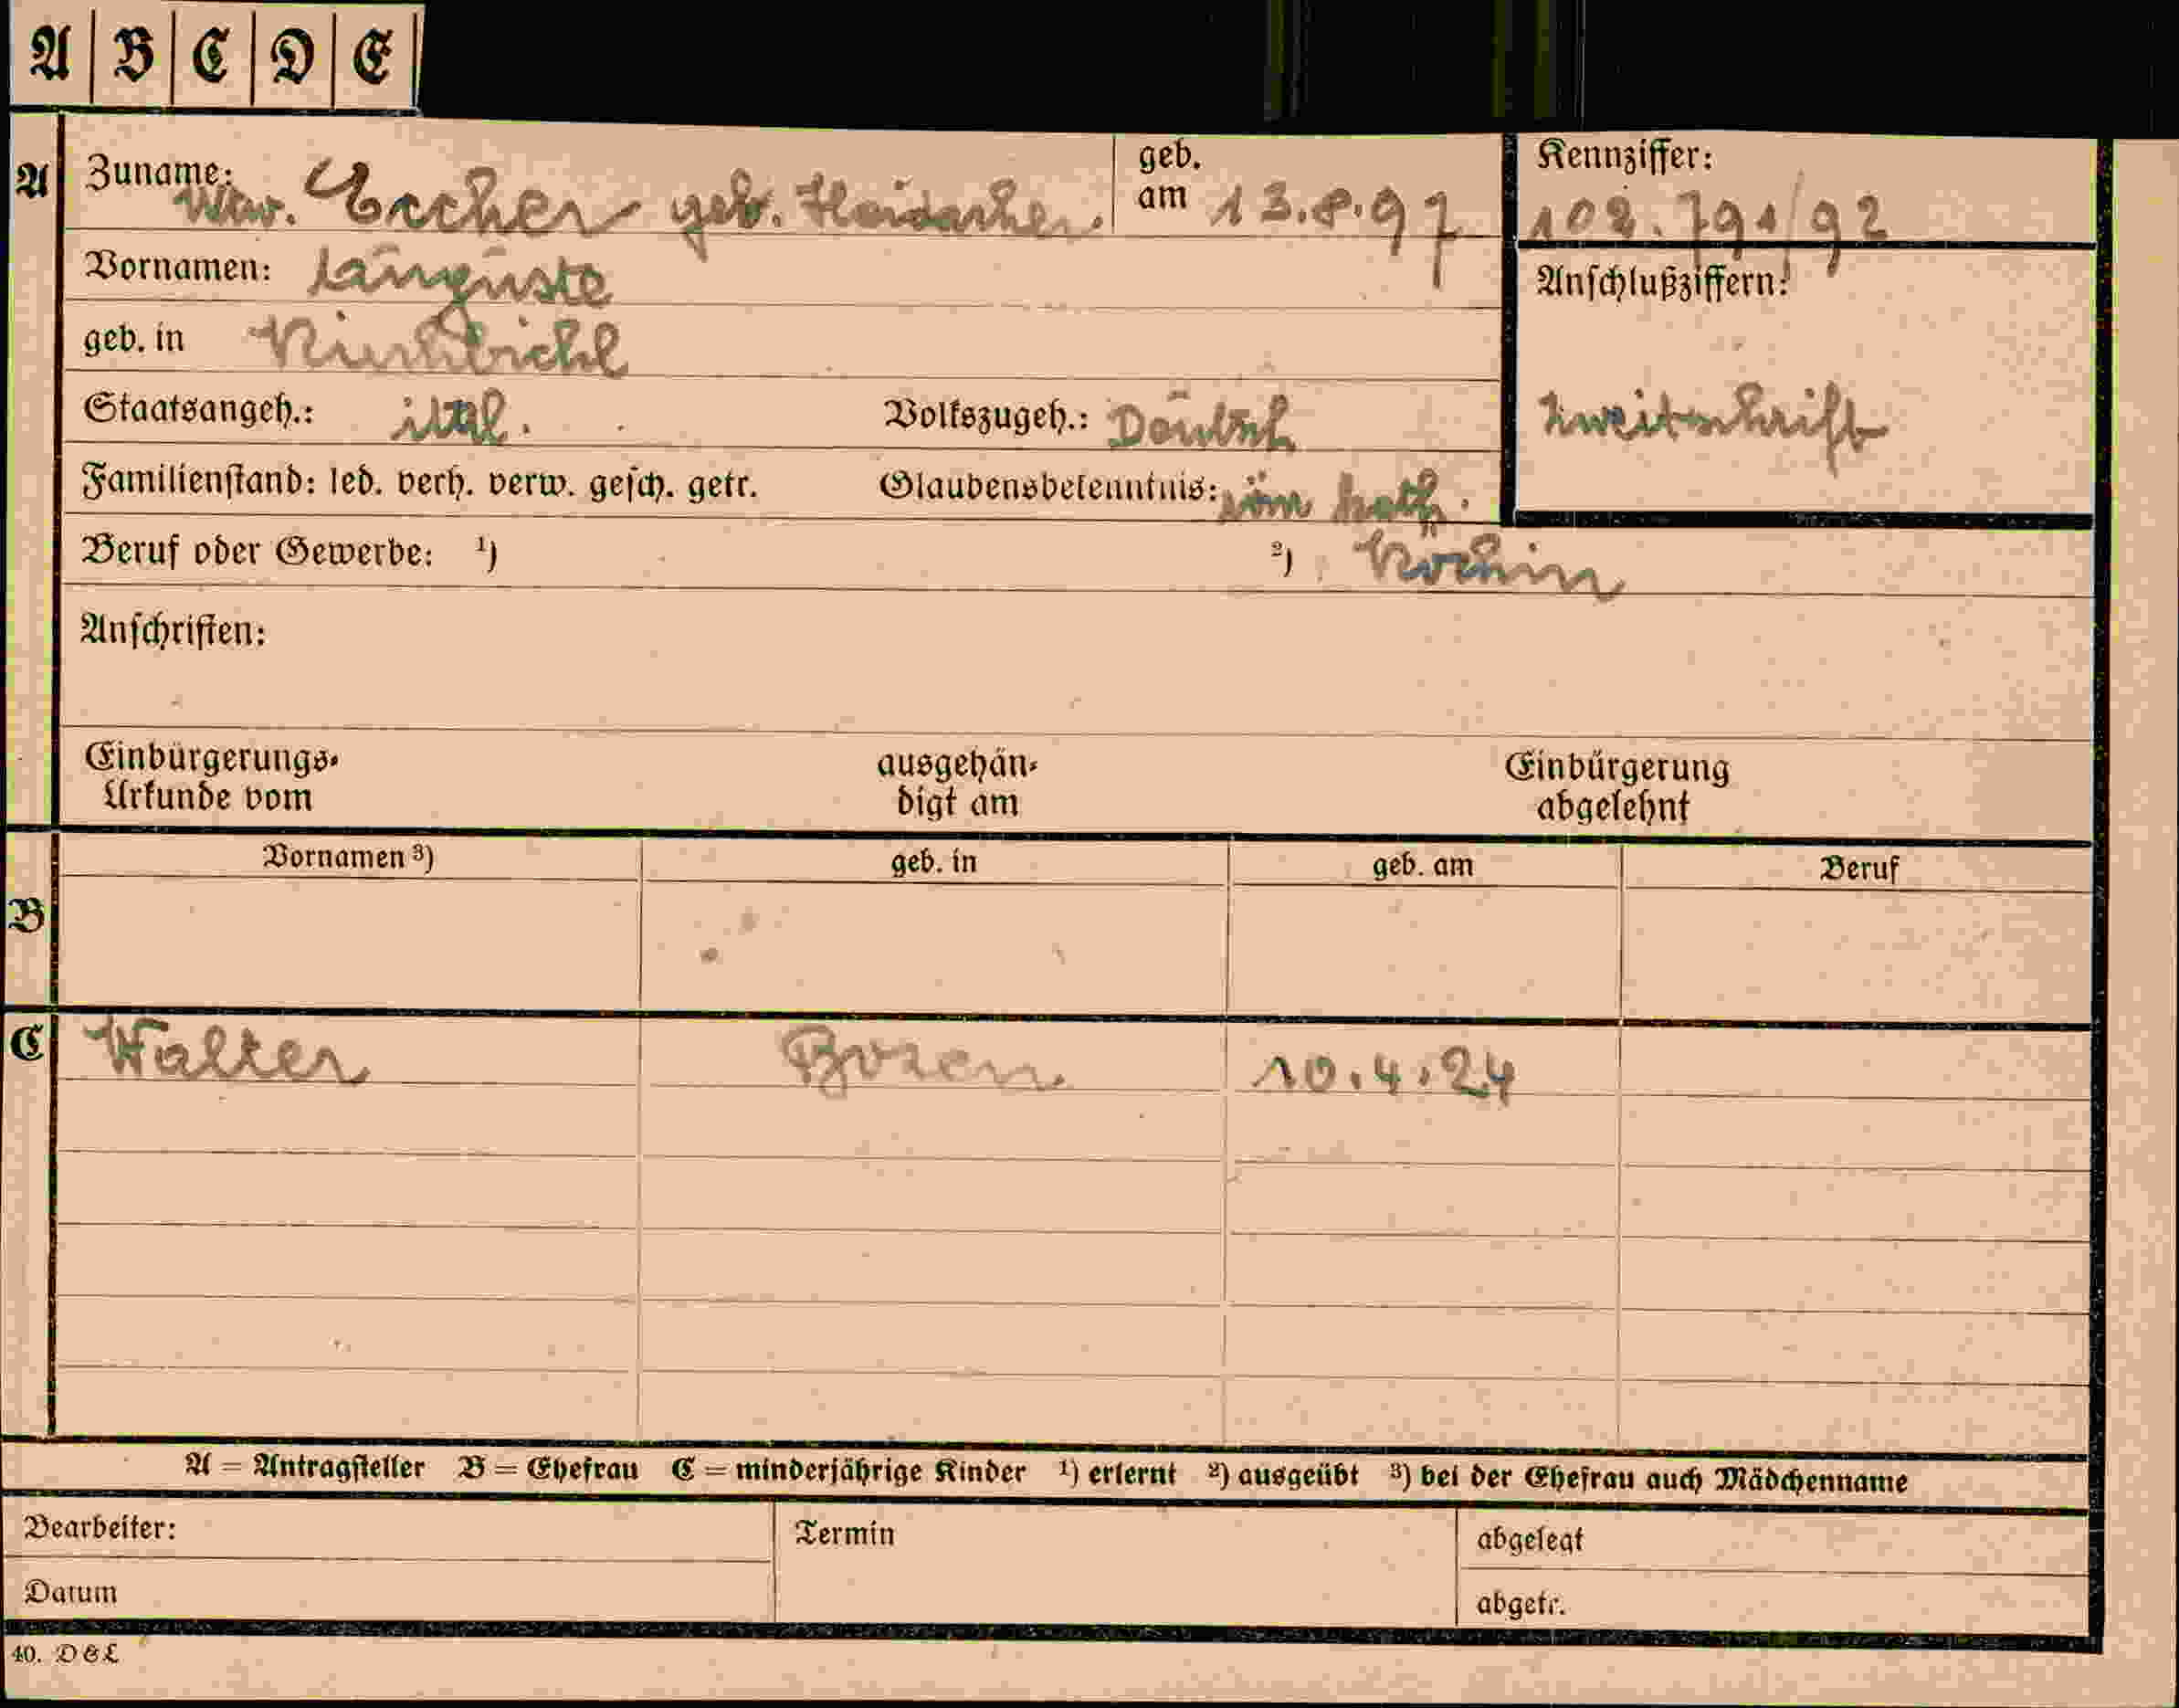 A B C D E
A Zuname: Wtw. Escher geb. Haidacher. geb. am 13.8.97 Kennziffer: 102.791/92
Vornamen: Auguste Anschlußziffern:
geb. in Kienbichl
Staatsangeh.: ital. Volkszugeh.: Deutsch Zweitschrift
Familienstand: led. verh. verw. gesch. getr. Glaubensbekenntnis: röm kath.
Beruf oder Gewerbe: ¹) ²) Köchin
Anschriften:
Einbürgerungs- ausgehän- Einbürgerung
Urkunde vom digt am abgelehnt
Vornamen ³) geb. in geb. am Beruf
B
C Walter Bozen 10.4.24
A = Antragsteller B = Ehefrau C = minderjährige Kinder ¹) erlernt ²) ausgeübt ³) bei der Ehefrau auch Mädchenname
Bearbeiter: Termin abgelegt
Datum abgetr.
40. D&L